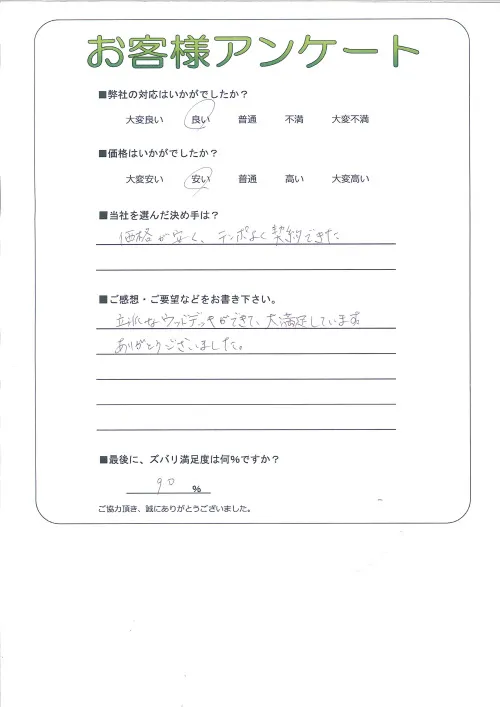 お客様アンケート
■弊社の対応はいかがでしたか？
大変良い 良い 普通 不満 大変不満
■価格はいかがでしたか？
大変安い 安い 普通 高い 大変高い
■当社を選んだ決め手は？
価格が安く、テンポよく契約できた
■ご感想・ご要望などをお書き下さい。
立派なウッドデッキができて、大満足しています
ありがとうございました。
■最後に、ズバリ満足度は何％ですか？
90 ％
ご協力頂き、誠にありがとうございました。